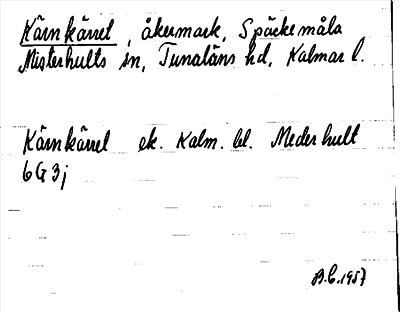 Kärnkärrel, åkermark, Späckemåla
Misterhults sn, Tunaläns hd, Kalmar l.
Kärnkärrel ek. Kalm. bl. Mederhult
6G3j
B.C. 1957